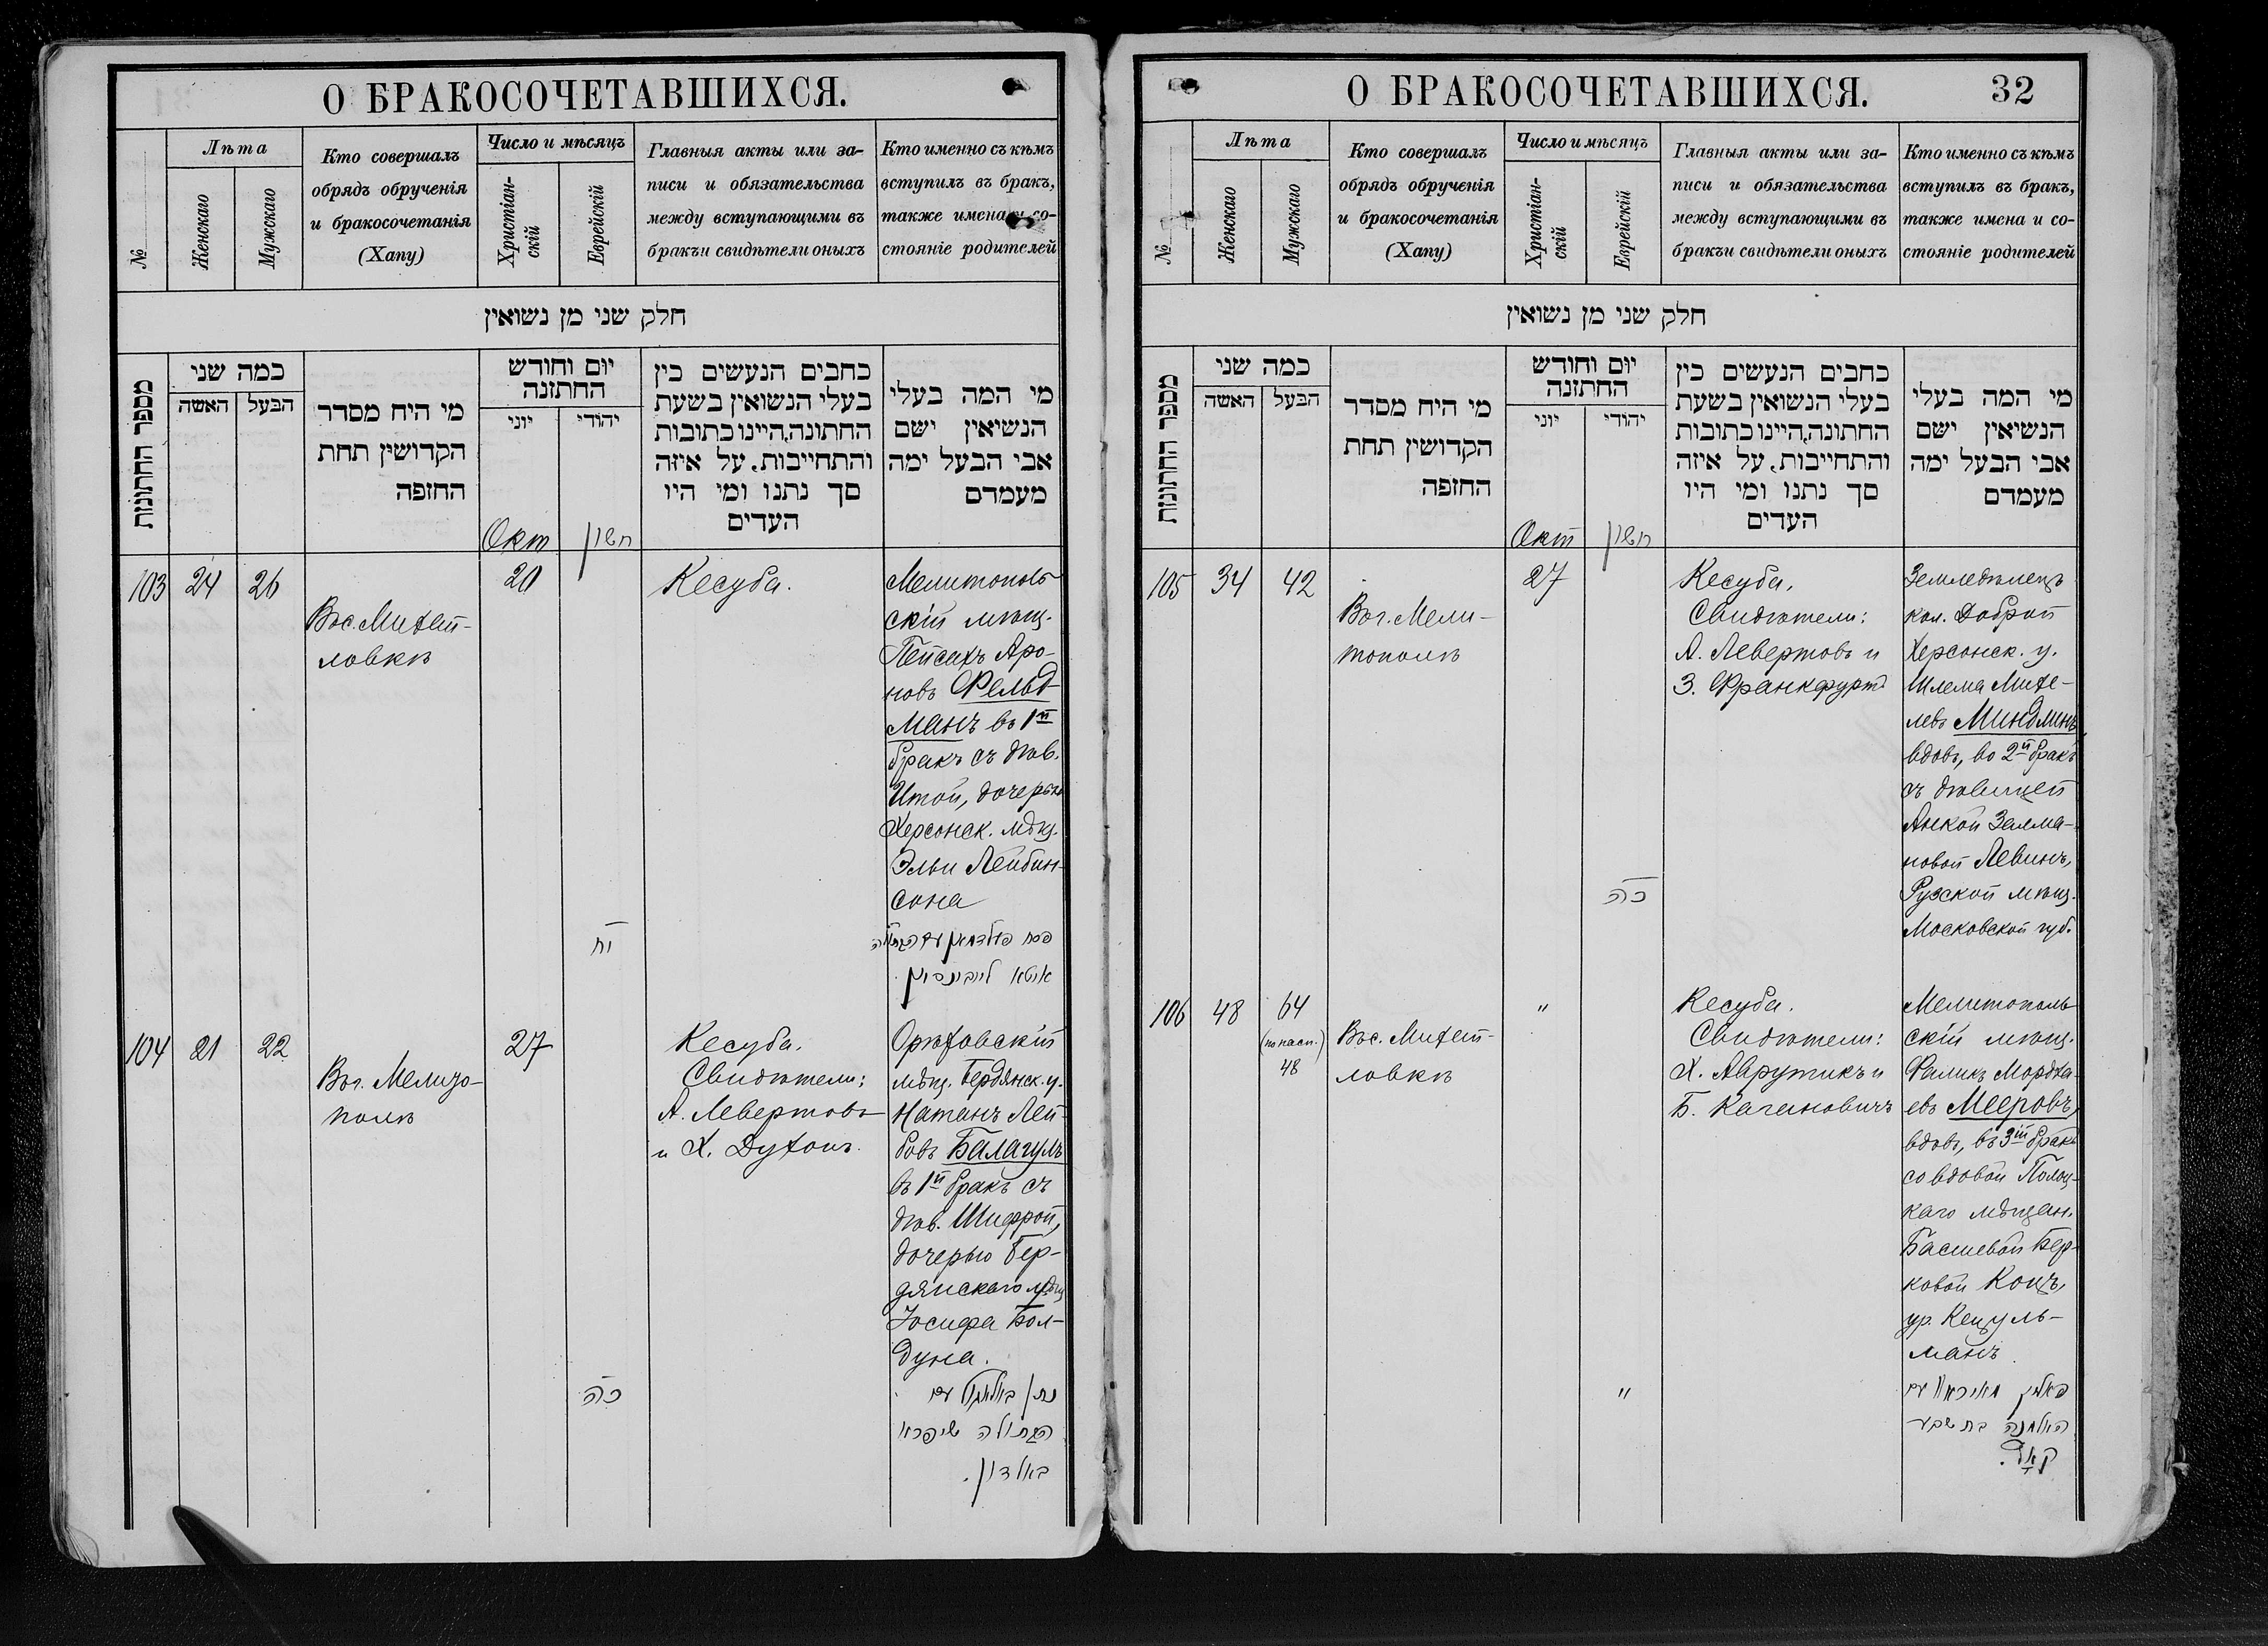 О БРАКОСОЧЕТАВШИХСЯ.
№
Лѣта
Женскаго
Мужскаго
Кто совершалъ
обрядъ обрученія
и бракосочетанія
(Хапу)
Число и мѣсяцъ
Христіан-
скій
Еврейскій
Главныя акты или за-
писи и обязательства
между вступающими въ
бракъи свидѣтели оныхъ
Кто именно съ кѣмъ
вступилъ въ бракъ,
также имена и со-
стояніе родителей
חלק שני מן נשואין
מספר החתונות
כמה שני
האשה
הבעל
מי היח מסדר
הקדושין תחת
החופה
יום וחודש
החתונה
יוני
יהודי
כתבים הנעשים בין
בעלי הנשואין בשעת
החתונה,היינו כתובות
והתחייבות, על איזה
סך נתנו ומי היו
העדים
מי המה בעלי
הנשיאין ישם
אבי הבעל ימה
מעמדם
Окт
חשון
103
24
26
Въ с. Михай-
ловкѣ
20
יח
Кесуба.
Мелитополь
скій мѣщ.
Пейсахъ Аро-
новъ Фельд
манъ въ 1й
бракъ съ дѣв.
Итой, дочерью
Херсонск. мѣщ.
Эльи Лейбин-
сона
פסח פעלדמאן עם הבתולה
איטא לייבינסוין.
104
21
22
Въ г. Мелито-
полѣ
27
כה
Кесуба.
Свидѣтели:
А. Левертовъ
и Х. Духонъ.
Орѣховскій
мѣщ. Бердянск. у.
Натанъ Лей-
бовъ Балагулъ
въ 1й бракъ съ
дѣв. Шифрой,
дочерью Бер-
дянскаго мѣщ
Іосифа Бол-
дуна.
נתן באלאגול עם
הבתולה שיפרא
באלדון.
О БРАКОСОЧЕТАВШИХСЯ.
32
№
Лѣта
Женскаго
Мужскаго
Кто совершалъ
обрядъ обрученія
и бракосочетанія
(Хапу)
Число и мѣсяцъ
Христіан-
скій
Еврейскій
Главныя акты или за-
писи и обязательства
между вступающими въ
бракъи свидѣтели оныхъ
Кто именно съ кѣмъ
вступилъ въ бракъ,
также имена и со-
стояніе родителей
חלק שני מן נשואין
מספר החתונות
כמה שני
האשה
הבעל
מי היח מסדר
הקדושין תחת
החופה
יום וחודש
החתונה
יוני
יהודי
כתבים הנעשים בין
בעלי הנשואין בשעת
החתונה,היינו כתובות
והתחייבות, על איזה
סך נתנו ומי היו
העדים
מי המה בעלי
הנשיאין ישם
אבי הבעל ימה
מעמדם
Окт
חשון
105
34
42
Въ г. Мели-
тополѣ
27
כה
Кесуба.
Свидѣтели:
А. Левертовъ и
З. Франкфуртъ
Земледѣлецъ
кол. Доброй
Херсонск. у.
Шлема Михе-
левъ Миндлинъ,
вдовъ, во 2й бракъ
съ дѣвицей
Анкой Залма-
новой Левинъ,
Рузской мѣщ.
Московской губ.
106
48
64
(по пасп.)
48
Въ с. Михай-
ловкѣ
"
"
Кесуба.
Свидѣтели:
Х. Аврутикъ и
Б. Кагановичъ
Мелитополь
скій мѣщ.
Фаликъ Мордха-
евъ Мееровъ,
вдовъ, въ 3й бракъ
со вдовой Полоц-
каго мѣщан.
Басшевой Бер-
ковой Коцъ,
ур. Кецуль-
манъ.
פאליק מאיראוו עם
האלמנה בת שבע
קאץ.